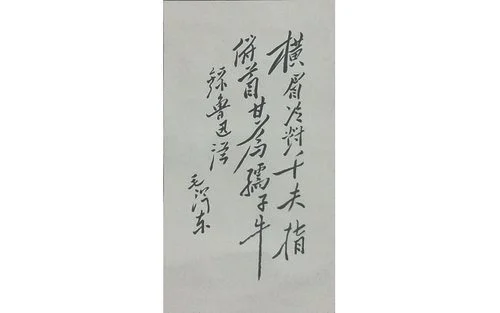 横眉冷對千夫指
俯首甘為孺子牛
錄魯迅诗
毛泽东